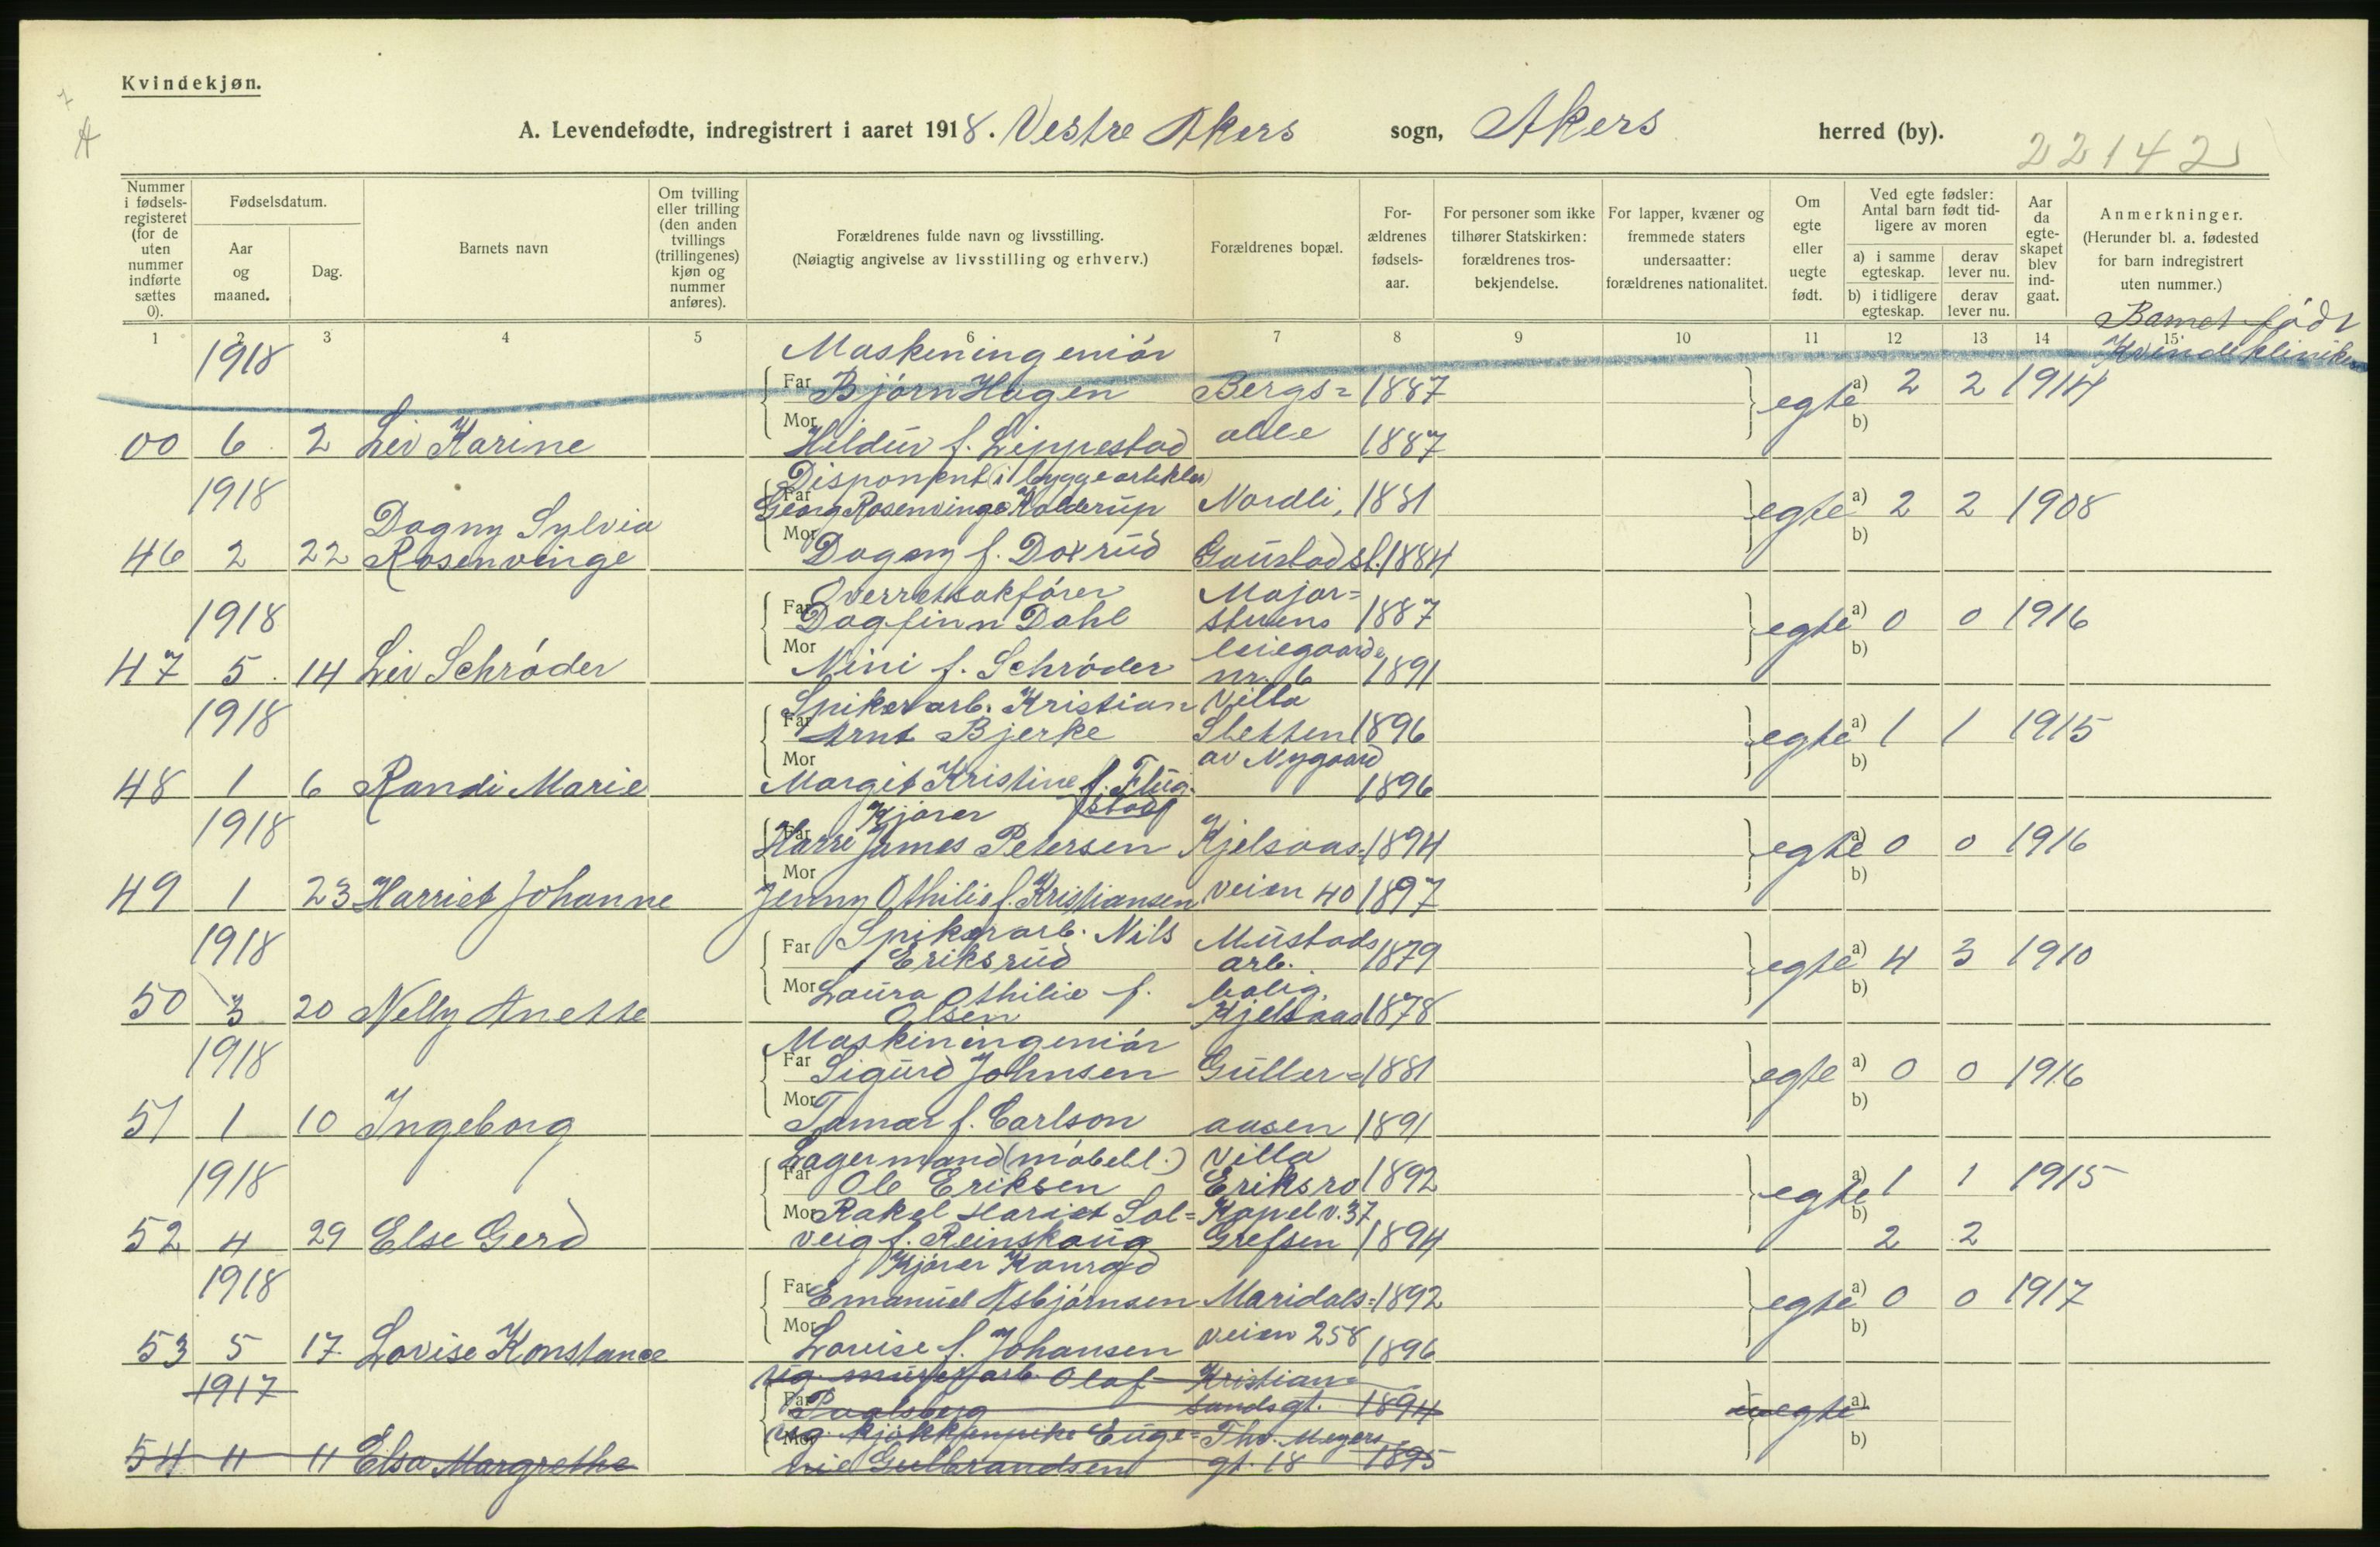 Kvindekjøn.
A. Levendefødte, indregistrert i aaret 1918. Vestre Akers sogn, Akers herred (by).
22142
Nummer i fødselsregisteret (for de uten nummer indførte sættes 0).
Fødselsdatum.
Aar og maaned.
Dag.
Barnets navn
Om tvilling eller trilling (den anden tvillings (trillingenes) kjøn og nummer anføres).
Forældrenes fulde navn og livsstilling.
(Nøiagtig angivelse av livsstilling og erhverv.)
Forældrenes bopæl.
Forældrenes fødselsaar.
For personer som ikke tilhører Statskirken: forældrenes trosbekjendelse.
For lapper, kvæner og fremmede staters undersaatter: forældrenes nationalitet.
Om egte eller uegte født.
Ved egte fødsler: Antal barn født tidligere av moren
a) i samme egteskap. derav lever nu.
b) i tidligere egteskap. derav lever nu.
Aar da egteskapet blev indgaat.
Anmerkninger.
(Herunder bl. a. fødested for barn indregistrert uten nummer.)
1 2 3 4 5 6 7 8 9 10 11 12 13 14 15
Barnet født
Kvindekliniken
1918 Maskeningeniör
Far Björn Hagen Bergs= 1887 egte a) 2 2 1914
00 6 2 Liv Karine Mor Hildur f. Lippestad alle 1887 b)
1918 Disponent (i byggeartikler)
Far Georg Rosenvinge Kolderup Nordli, 1881 egte a) 2 2 1908
Dagny Sylvia
46 2 22 Rosenvinge Mor Dagny f. Doxrud Gaustadst. 1884 b)
1918 Overretssakförer Major=
Far Dagfinn Dahl stuens 1887 egte a) 0 0 1916
leiegaarde
47 5 14 Liv Schröder Mor Nini f. Schröder nr. 6 1891 b)
1918 Spikerarb. Kristian Villa
Far Arnt Bjerke Sletten 1896 egte a) 1 1 1915
av Nygaard
48 1 6 Randi Marie Mor Margit Kristine f. Flug= 1896 b)
stad
1918 Kjörer
Far Harri James Petersen Kjelsaas= 1894 egte a) 0 0 1916
49 1 23 Harriet Johanne Mor Jenny Othilie f. Kristiansen veien 40 1897 b)
1918 Spikerarb. Nils Mustads
Far Eriksrud arb. 1879 egte a) 4 3 1910
Mor Laura Othilie f. bolig. b)
50 3 20 Nelly Anette Olsen Kjelsaas 1878
1918 Maskiningeniör
Far Sigurd Johnsen Guller= 1881 egte a) 0 0 1916
51 1 10 Ingeborg Mor Tamar f. Carlson aasen 1891 b)
1918 Lagermand (möbell.) Villa
Far Ole Eriksen Eriksro 1892 egte a) 1 1 1915
Mor Rakel Hariet Sol= Kapelv. 37 b)
52 4 29 Else Gerd veig f. Reinskaug Grefsen 1894 2 2
1918 Kjörer Konrad
Far Emanuel Asbjörnsen Maridals= 1892 egte a) 0 0 1917
53 5 17 Lovise Konstance Mor Lovise f. Johansen veien 258 1896 b)
1917 Ug. murerarb. Olaf Kristian=
Far sandsgt. 1894 uegte a)
Mor Ug. kjökkenpike Euge= Thv. Meyers b)
54 11 11 Elsa Margrethe nie Gulbrandsen gt. 18 1895